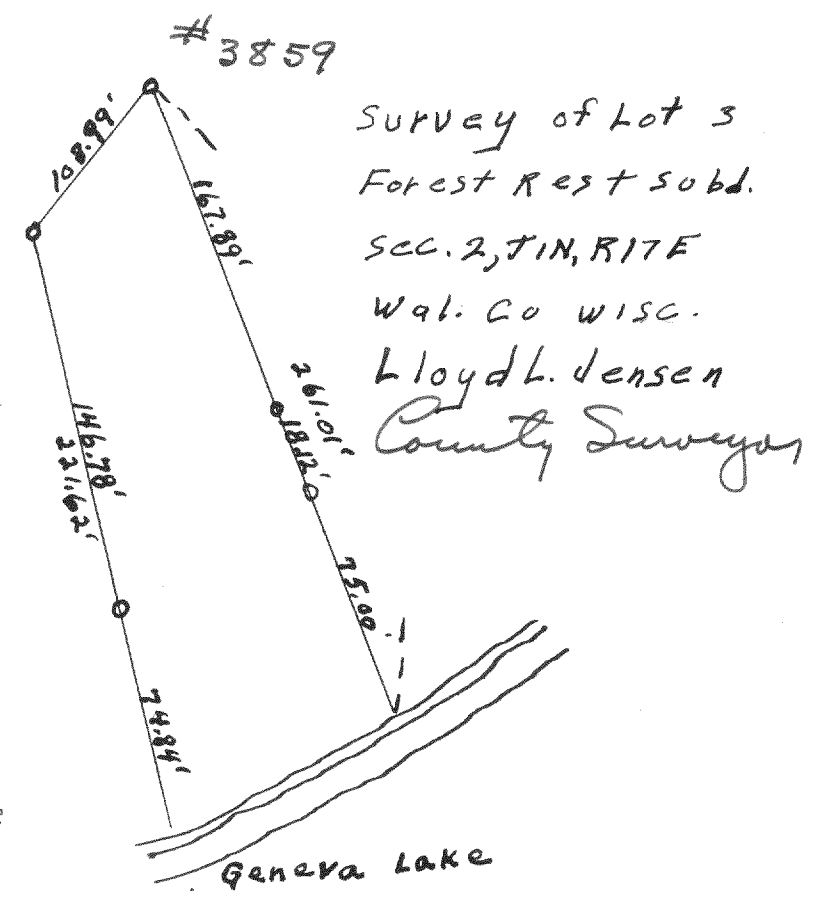 #3859
Survey of Lot 3
Forest Rest Subd.
Sec. 2, T1N, R17E
Wal. Co Wisc.
Lloyd L. Jensen
County Surveyor
108.99'
167.89'
261.01'
18.12'
75.00
146.78'
221.62'
74.84'
Geneva Lake